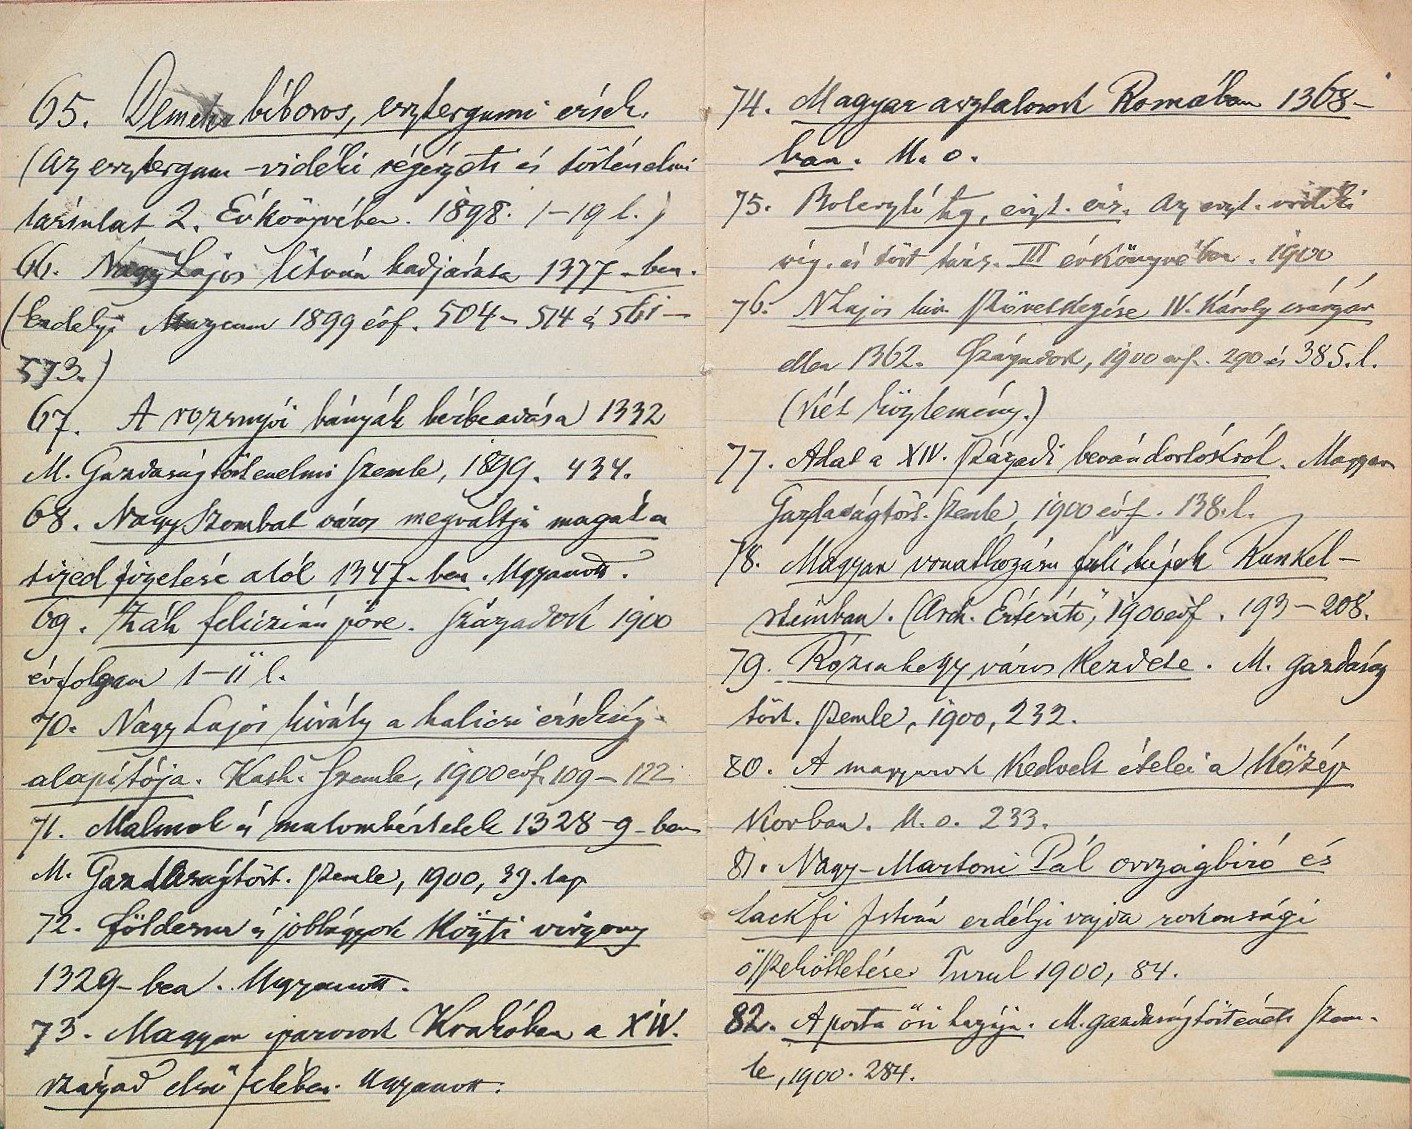 65. Demeter bíboros, esztergomi érsek.
(Az esztergom-vidéki régészeti és történelmi
társulat 2. Évkönyvében. 1898. 1-19 l.)
66. Nagy Lajos litván hadjárata 1377-ben.
(Erdélyi Muzeum 1899 évf. 504-514 és 561-
573.)
67. A rozsnyói bányák bérbeadása 1332
M. Gazdaságtörténelmi Szemle, 1899. 434.
68. Nagy Szombat város megváltja magát a
tized fizetése alól 1347-ben. Ugyanott.
69. Zák feliczián pöre. Századok 1900
évfolyam 1-11 l.
70. Nagy Lajos király a halicsi érsekség
alapítója. Kath. Szemle, 1900 évf. 109-122
71. Malmok és malombérletek 1328-9-ben
M. Gazdaságtört. Szemle, 1900, 39. lap
72. Földesur és jobbágyok közti viszony
1329-ben. Ugyanott.
73. Magyar iparosok Krakóban a XIV.
század első felében. Ugyanott.
74. Magyar asztalosok Romában 1368-
ban. U. o.
75. Boleszló hg, eszt. érs. Az eszt. vidéki
rég. és tört társ. III évkönyvében. 1900
76. N Lajos kir. szövetkezése IV. Károly császár
ellen 1362. Századok, 1900 évf. 290 és 385. l.
(Két közlemény.)
77. Adat a XIV. századi bevándorlásról. Magyar
Gazdaságtört. Szemle, 1900 évf. 138. l.
78. Magyar vonatkozásu fali képek Runkel-
steinban. (Arch. Értesítő, 1900 évf. 193-208.
79. Rózsahegy város kezdete. M. gazdaság
tört. szemle, 1900, 232.
80. A magyarok kedvelt ételei a közép
korban. U. o. 233.
81. Nagy-Martoni Pál országbiró és
Lackfi István erdélyi vajda rokonsági
összeköttetése Turul 1900, 84.
82. A porta ősi hazája. M. gazdaságtörténeti szem-
le, 1900. 284.